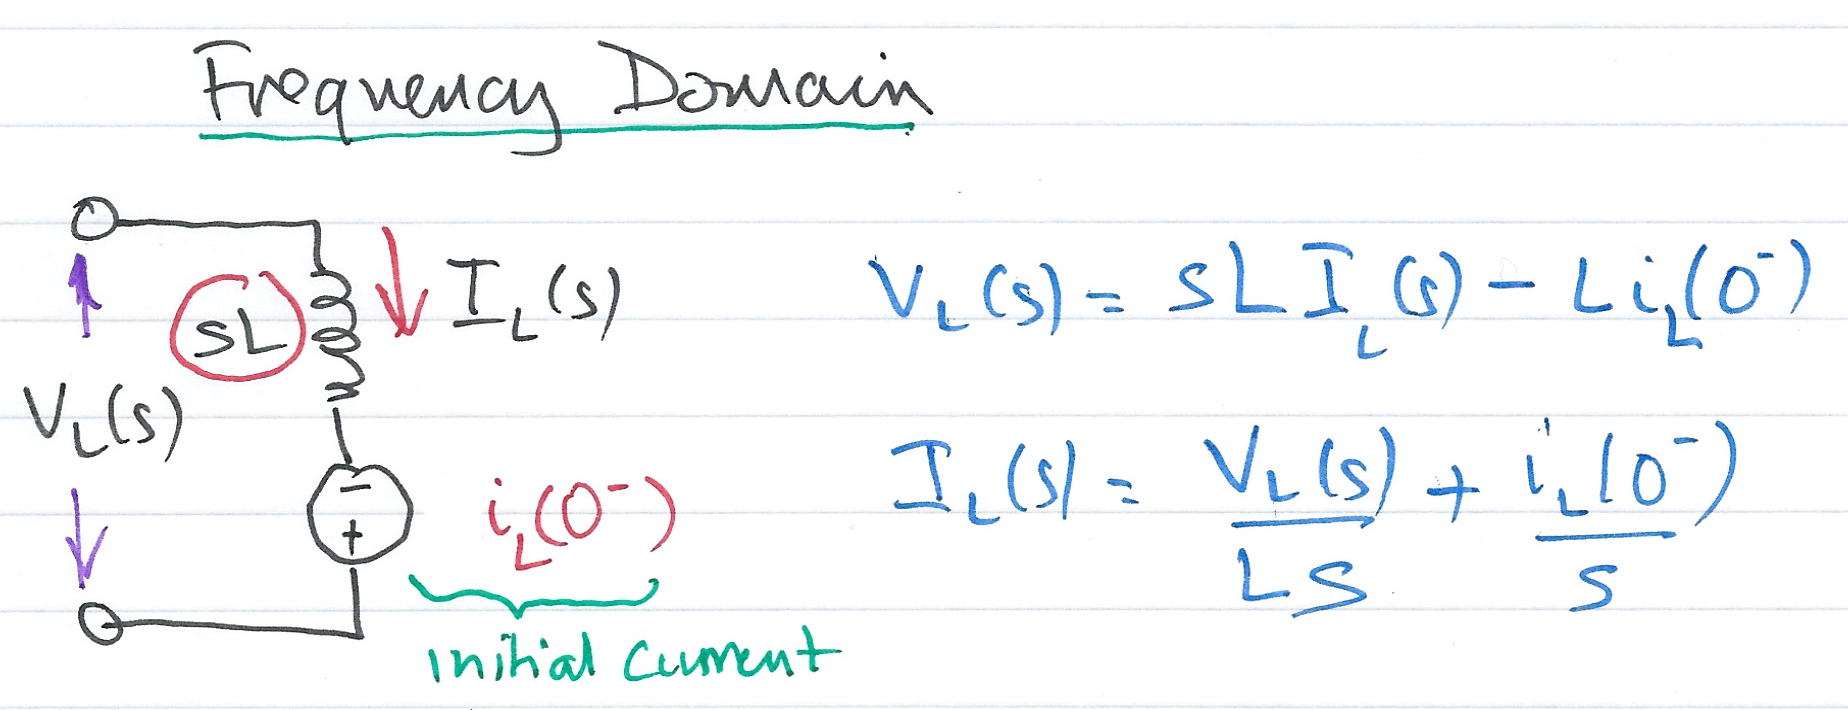 Frequency Domain
sL
I_L(s)
V_L(s)
−
+
i_L(0⁻)
initial current
V_L(s) = sL I_L(s) − L i_L(0⁻)
I_L(s) = V_L(s)/LS + i_L(0⁻)/s